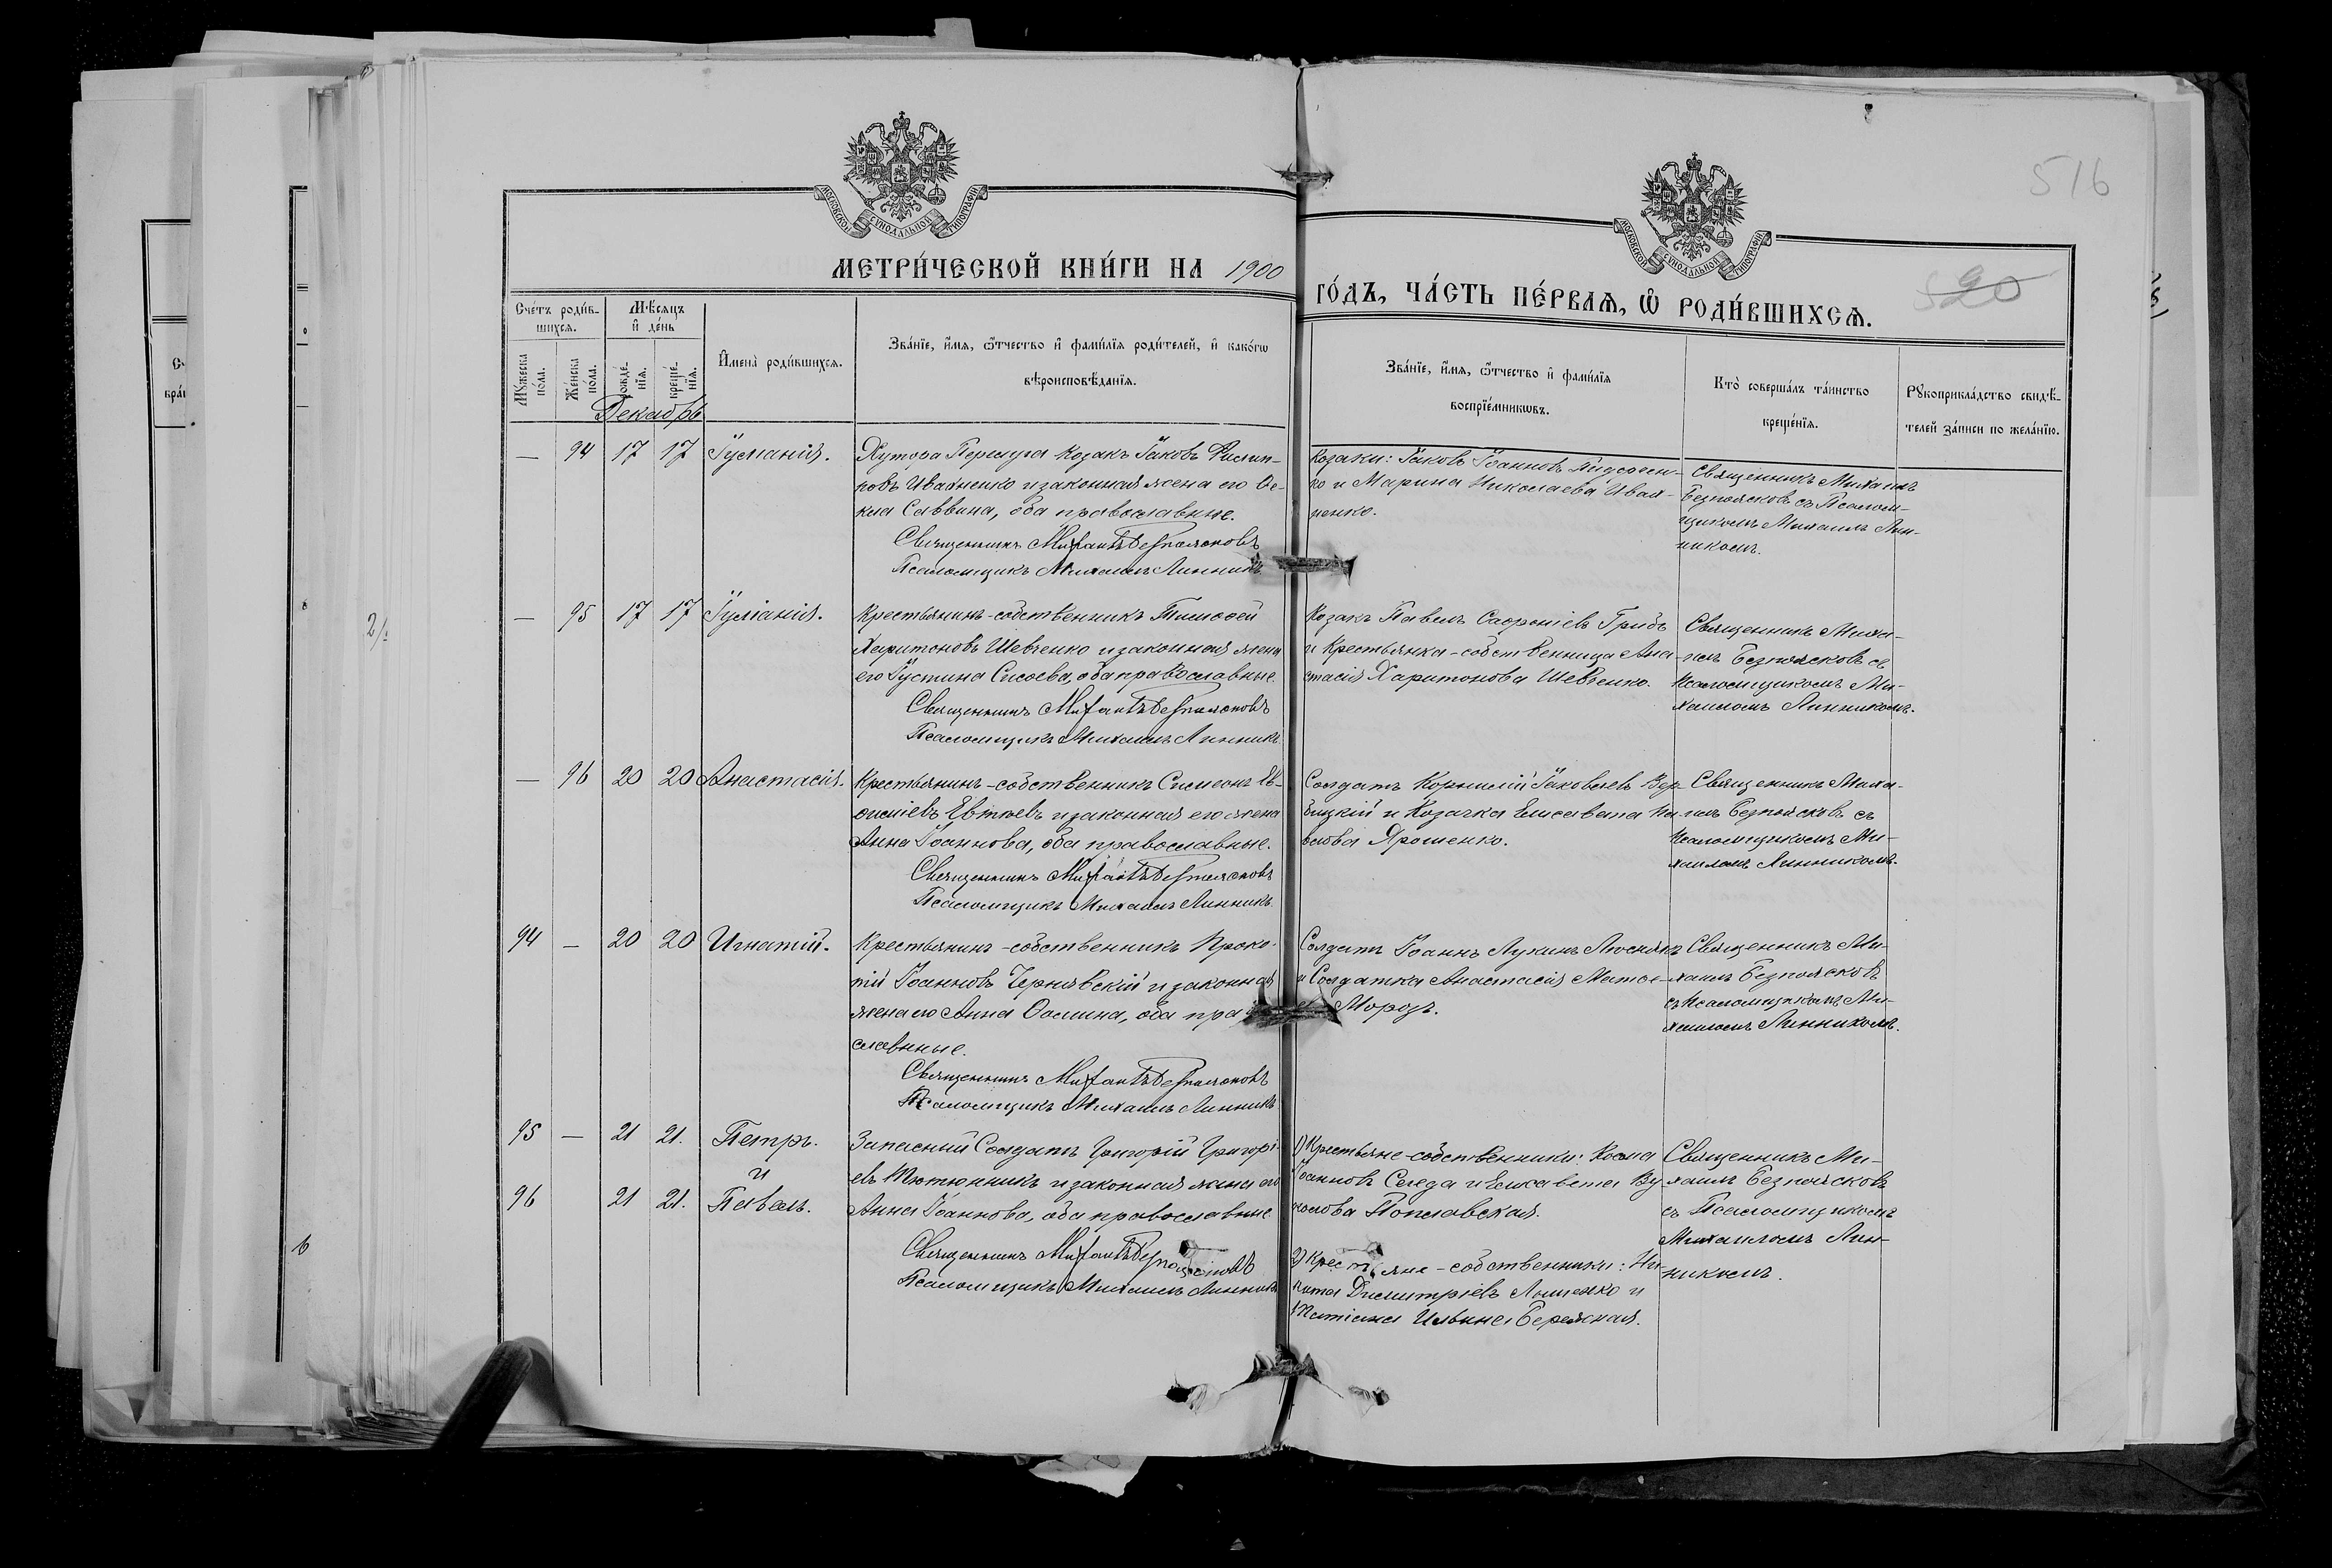 МОСКОВСКОЙ СѴНОДАЛЬНОЙ ТИПОГРАФІИ
МОСКОВСКОЙ СѴНОДАЛЬНОЙ ТИПОГРАФІИ
516
520
МЕТРИ́ЧЕСКОЙ КНИ́ГИ НА 1900
ГО́ДЪ, ЧА́СТЬ ПЕ́РВАЯ, Ѽ РОДИ́ВШИХСЯ.
Сче́тъ роди́в-
шихся.
Мꙋ́жеска по́ла.
Же́нска по́ла.
Мѣ́сяцъ
и҆ де́нь
рожде́нїя.
креще́нїя.
И҆мена̀ роди́вшихся.
Зва́нїе, и҆́мя, ѻ҆́тчество и҆ фами́лїя роди́телей, и҆ како́гѡ
вѣроисповѣ́данїя.
Зва́нїе, и҆́мя, ѻ҆́тчество и҆ фами́лїя
воспрїе́мникѡвъ.
Кто̀ соверша́лъ та́инство
креще́нїя.
Рꙋкоприкла́дство свидѣ́-
телей за́писи по жела́нїю.
Декабрь
— 94 17 17 Іуліанія.
Хутора Козакъ Іаковъ Филип-
повъ Иваненко и законная жена его Ѳе-
кла Саввина, оба православные.
Священникъ Михаилъ Безпоясковъ
Псаломщикъ Михаилъ Линникъ
Козаки: Іаковъ Іоанновъ
ко и Марина Николаева Иван-
ненко.
Священникъ Михаилъ
Безпоясковъ съ Псалом-
щикомъ Михаилъ Лин-
никомъ.
— 95 17 17 Іуліанія.
Крестьянинъ-собственникъ Тимоѳей
Харитоновъ Шевченко и законная жена
его Іустина Сисоева, оба православные.
Священникъ Михаилъ Безпоясковъ
Псаломщикъ Михаилъ Линникъ.
Козакъ Павелъ Сафроніевъ Грибъ
и Крестьянка-собственница Ана-
стасія Харитонова Шевченко.
Священникъ Миха-
илъ Безпоясковъ съ
Псаломщикомъ Ми-
хаиломъ Линникомъ.
— 96 20 20 Анастасія.
Крестьянинъ-собственникъ Симеонъ Ев-
ѳиміевъ Евтюевъ и законная его жена
Анна Іоаннова, оба православные.
Священникъ Михаилъ Безпоясковъ
Псаломщикъ Михаилъ Линникъ.
Солдатъ Корнилій Іаковлевъ Вер-
бицкій и Козачка Елисавета Па-
влова Ярошенко.
Священникъ Миха-
илъ Безпоясковъ съ
Псаломщикомъ Ми-
хаиломъ Линникомъ.
94 — 20 20 Игнатій.
Крестьянинъ-собственникъ Проко-
пій Іоанновъ Чернявскій и законная
жена его Анна Ѳомина, оба право-
славные.
Священникъ Михаилъ Безпоясковъ
Псаломщикъ Михаилъ Линникъ
Солдатъ Іоаннъ Лукинъ
и Солдатка Анастасія Матѳе-
Морозъ.
Священникъ Ми-
хаилъ Безпоясковъ
съ Псаломщикомъ Ми-
хаиломъ Линникомъ.
95 — 21 21. Петръ.
и
96 21 21. Павелъ.
Запасный Солдатъ Григорій Григорі-
евъ Тютюнникъ и законная жена его
Анна Іоаннова, оба православные.
Священникъ Михаилъ Безпоясковъ
Псаломщикъ Михаилъ Линникъ
1) Крестьяне-собственники: Косма
Іоанновъ Середа и Елисавета Ву-
колова Поплавская.
2) Крестьяне-собственники: Ни-
кита Димитріевъ Ляшенко и
Татіана Ильина Бережная.
Священникъ Ми-
хаилъ Безпоясковъ
съ Псаломщикомъ
Михаиломъ Лин-
никомъ.